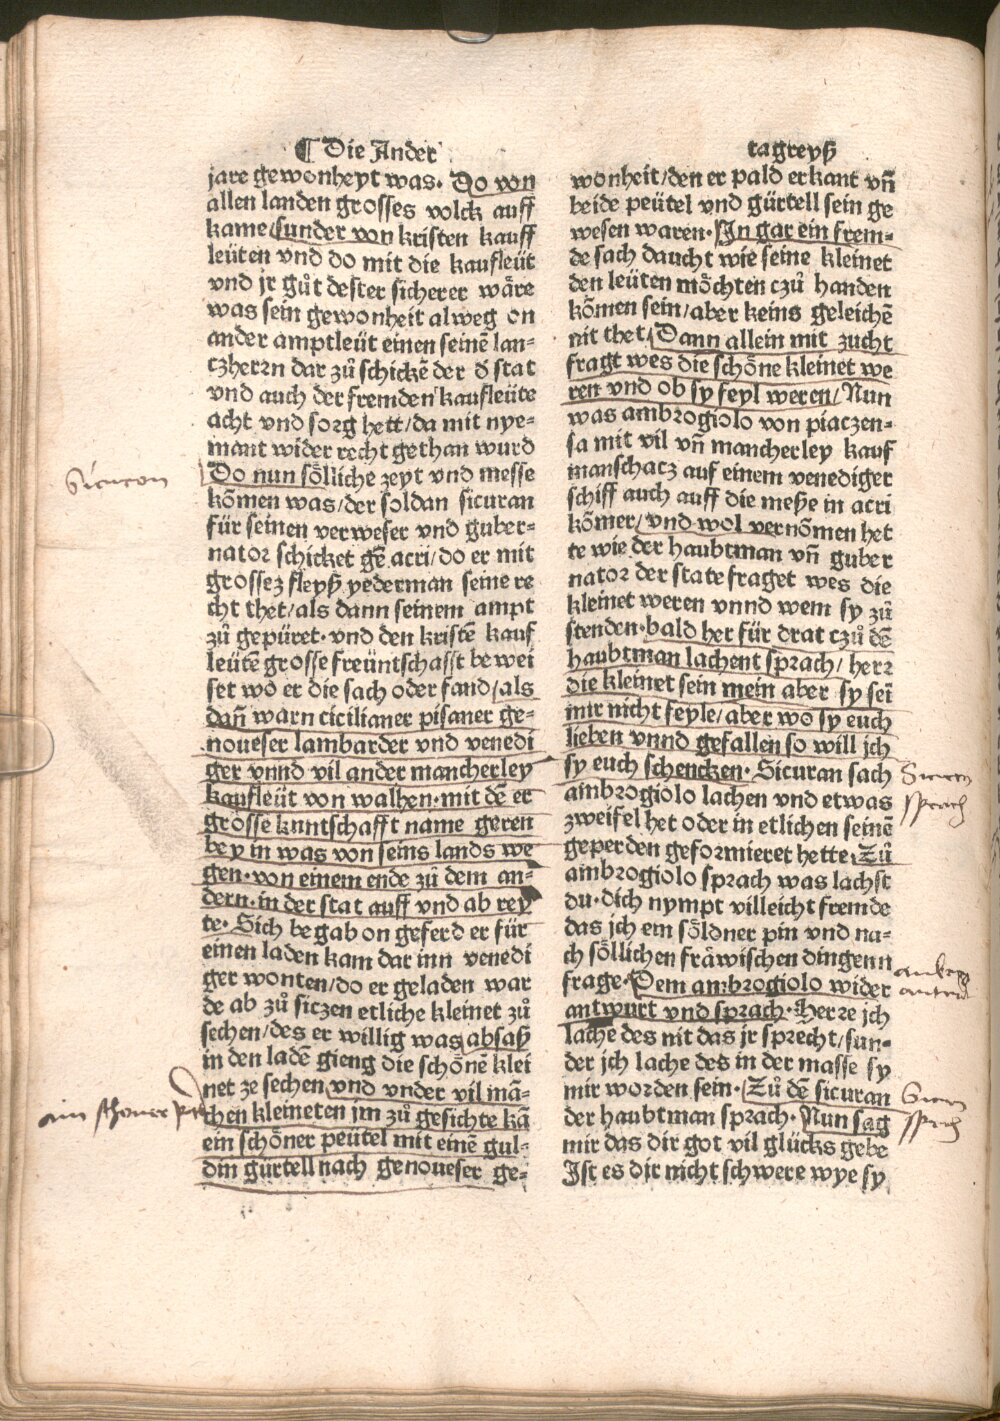 ¶ Die Ander
tagreyß
jare gewonheyt was. Do von
allen landen grosses volck auff
kame/sunder von kristen kauff
leüten vnd do mit die kaufleüt
vnd jr gůt dester sicherer wäre
was sein gewonheit alweg on
ander amptleüt einen seinē lan⸗
czherꝛn dar zů schickē der d stat
vnd auch der fremden kaufleüte
acht vnd sorg hett/da mit nye⸗
mant wider recht gethan wurd
Do nun söliche zeyt vnd messe
kōmen was/der soldan sicuran
für seinen verweser vnd guber⸗
natoꝛ schicket gē acri/do er mit
grossez fleyß yederman seine re
cht thet/als dann seinem ampt
zů gepüret. vnd den kristē kauf
leütē grosse freüntschafft bewei
set wo er die sach oder fand/als
dan̄ warn cicilianer pisaner ge⸗
noueser lambarder vnd venedi
ger vnnd vil ander mancherley
kaufleüt von walhen. mit dē er
grosse kuntschafft name geren
bey in was von seins lands we
gen. von einem ende zů dem an⸗
dern. in der stat auff vnd ab rey
te. Sich begab on geferd er für
einen laden kam dar inn venedi
ger wonten/do er geladen war
de ab zů siczen etliche kleinet zů
sechen/des er willig was/absaß
in den ladē gieng die schönē klei
net ze sechen/vnd vnder vil mā⸗
chen kleineten im zů gesichte kā
ein schöner peütel mit einē gul⸗
din gürtell nach genoueser ge⸗
wonheit/den er pald erkant vn̄
beide peütel vnd gürtell sein ge
wesen waren. In gar ein frem⸗
de sach daucht wie seine kleinet
den leüten möchten czů handen
kōmen sein/aber keins geleichē
nit thet/Dann allein mit zucht
fragt wes die schöne kleinet we
ren vnd ob sy feyl weren/Nun
was ambrogiolo von piaczen⸗
sa mit vil vn̄ mancherley kauf
manschacz auf einem venediger
schiff auch auff die meße in acri
kōmer/vnd wol vernōmen het
te wie der haubtman vn̄ guber
natoꝛ der state fraget wes die
kleinet weren vnnd wem sy zů
stenden. bald her für drat czů dē
haubtman lachent sprach/herꝛ
die kleinet sein mein aber sy sei
mir nicht feyle/aber wo sy euch
lieben vnnd gefallen so will jch
sy euch schencken. Sicuran sach
ambrogiolo lachen vnd etwas
zweifel het oder in etlichen seinē
geperden geformieret hette. Zů
ambrogiolo sprach was lachst
du. dich nympt villeicht fremde
das jch ein söldner pin vnd na⸗
ch söllichen fräwischen dingenn
frage. Dem ambrogiolo wider
antwurt vnd sprach. Herre jch
lache des nit das jr sprecht/sun⸗
der jch lache des in der masse sy
mir worden sein. Zů dē sicuran
der haubtman sprach. Nun sag
mir das dir got vil glücks gebe
Ist es dir nicht schwere wye sy
Sicuran
ain schoner
Sicuran
sprach
Sicuran
sprach